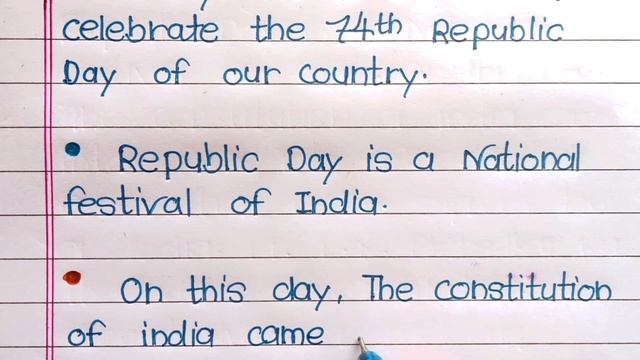 celebrate the 74th Republic
Day of our country.
• Republic Day is a National
festival of India.
• On this day, The constitution
of india came